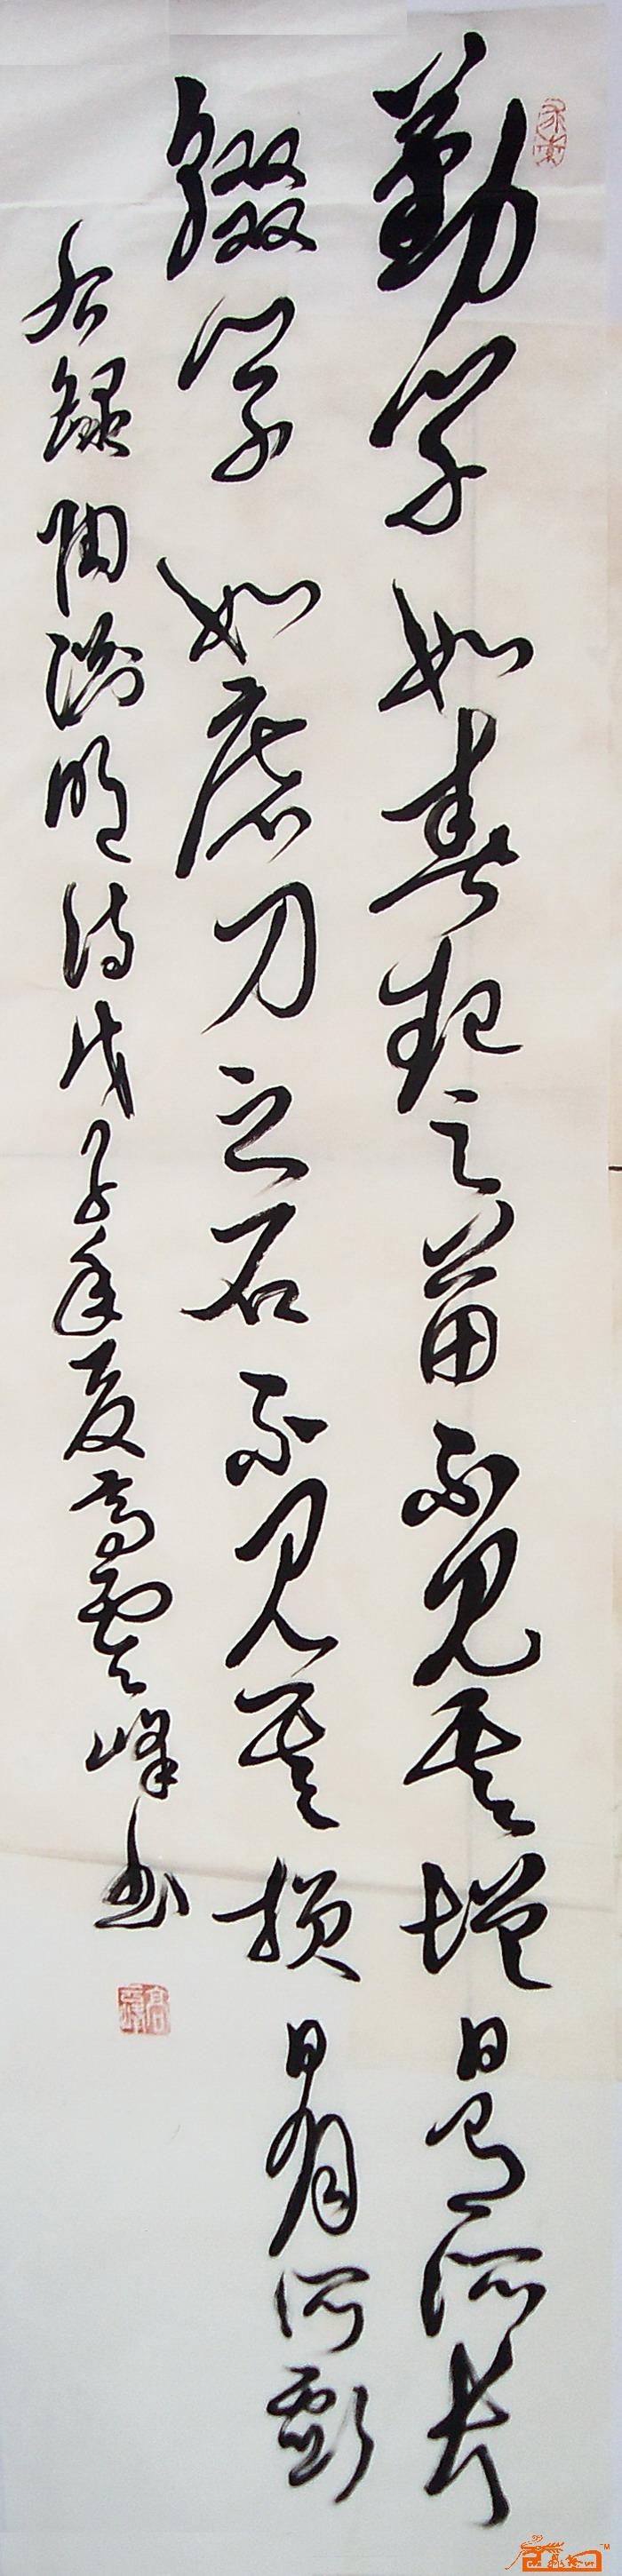 勤学如春起之苗不见其增日有所长
辍学如磨刀之石不见其损日有所虧
右録陶渊明诗戊子年夏高雲峰书